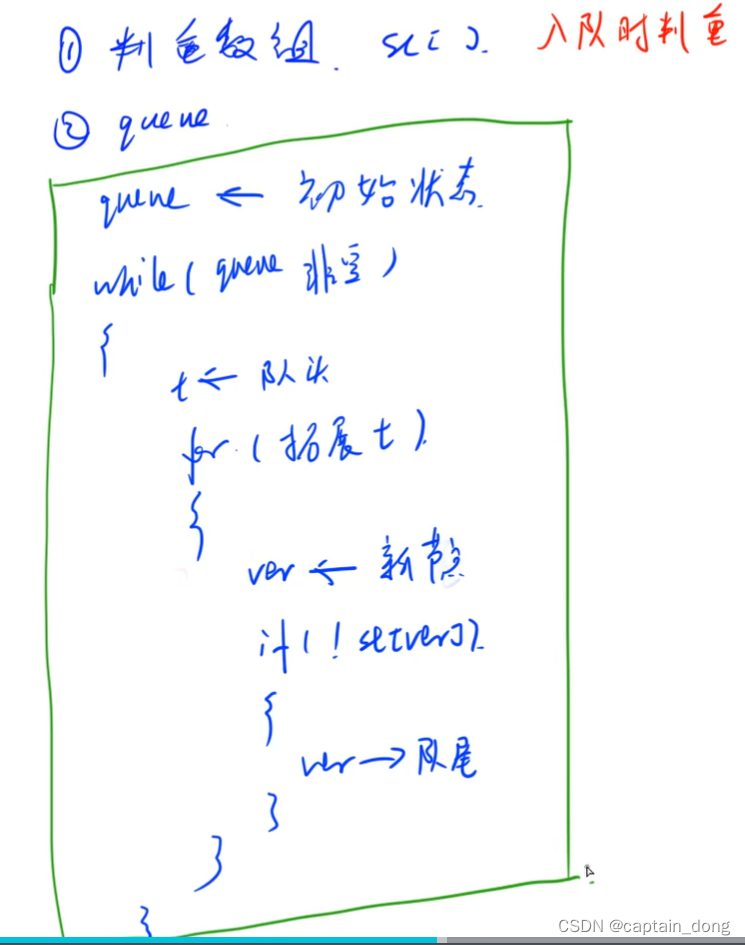 ① 判重数组. st[]. 入队时判重
② queue
queue ← 初始状态
while(queue 非空)
{
t ← 队头
for(拓展 t)
{
ver ← 新节点
if(!st[ver])
{
ver → 队尾
}
}
}
CSDN @captain_dong